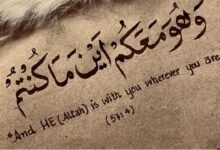 وَهُوَ مَعَكُمْ اَيْنَ مَا كُنْتُمْ
"And HE (Allah) is with you wherever you are
(57:4)